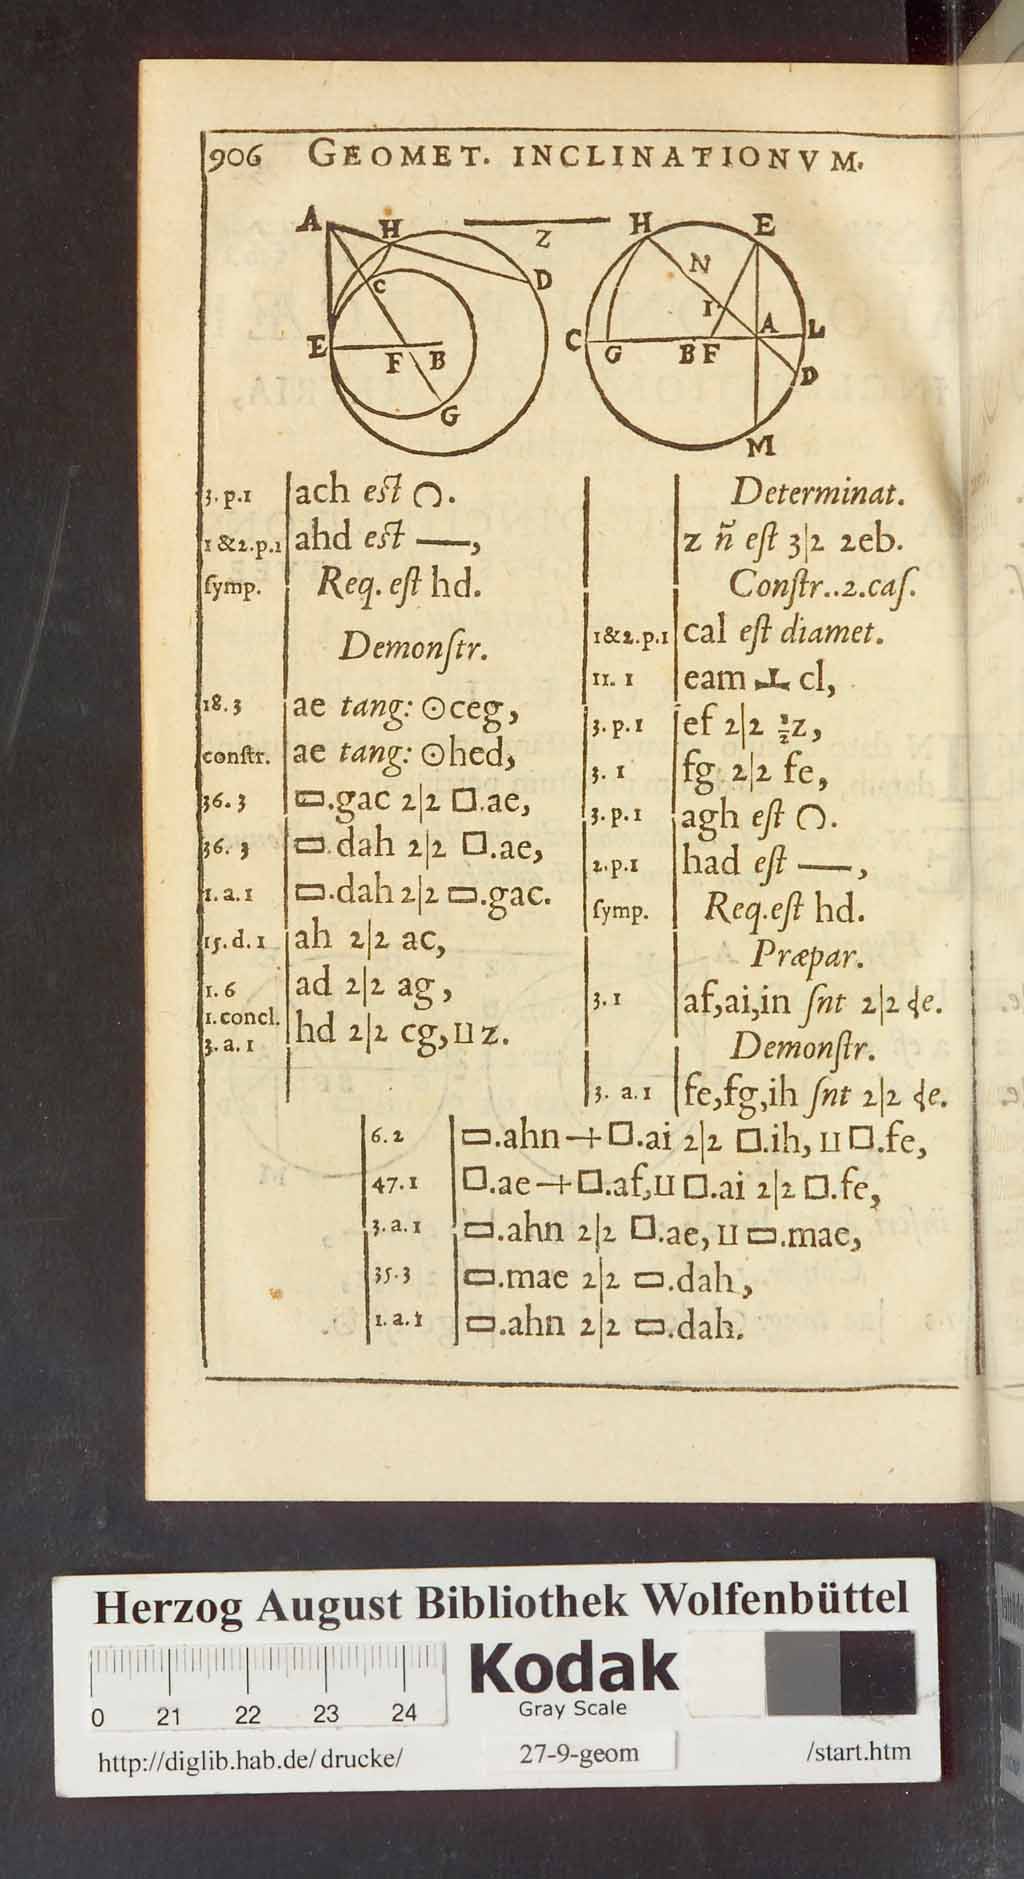 906 GEOMET. INCLINATIONVM.
A H Z H E
C D N
I
E F B C G B F A L
G D
M
3. p. 1 ach est ◠.
1 & 2. p. 1 ahd est —,
symp. Req. est hd.
Demonstr.
18. 3 ae tang: ⊙ceg,
constr. ae tang: ⊙hed,
36. 3 ▭.gac 2|2 □.ae,
36. 3 ▭.dah 2|2 □.ae,
1. a. 1 ▭.dah 2|2 ▭.gac.
15. d. 1 ah 2|2 ac,
1. 6 ad 2|2 ag,
1. concl.
3. a. 1 hd 2|2 cg, ⊔z.
Determinat.
z ñ est 3|2 2eb.
Constr..2.cas.
1&2.p.1 cal est diamet.
11. 1 eam ⊥ cl,
3. p. 1 ef 2|2 ½z,
3. 1 fg 2|2 fe,
3. p. 1 agh est ◠.
2. p. 1 had est —,
symp. Req. est hd.
Præpar.
3. 1 af,ai,in snt 2|2 ⸡e.
Demonstr.
3. a. 1 fe,fg,ih snt 2|2 ⸡e.
6. 2 ▭.ahn + □.ai 2|2 □.ih, ⊔ □.fe,
47. 1 □.ae + □.af, ⊔ □.ai 2|2 □.fe,
3. a. 1 ▭.ahn 2|2 □.ae, ⊔ ▭.mae,
35. 3 ▭.mae 2|2 ▭.dah,
1. a. 1 ▭.ahn 2|2 ▭.dah.
Herzog August Bibliothek Wolfenbüttel
0 21 22 23 24
Kodak
Gray Scale
http://diglib.hab.de/drucke/ 27-9-geom /start.htm